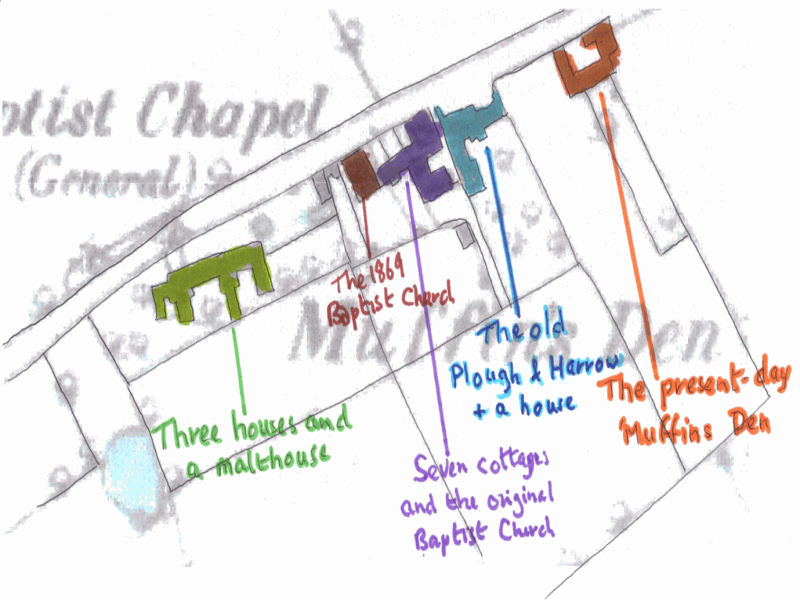 ptist Chapel
(General)
The 1869
Baptist Church
Muffins Den
The old
Plough & Harrow
+ a house
The present-day
'Muffins Den
Three houses and
a malthouse
Seven cottages
and the original
Baptist Church